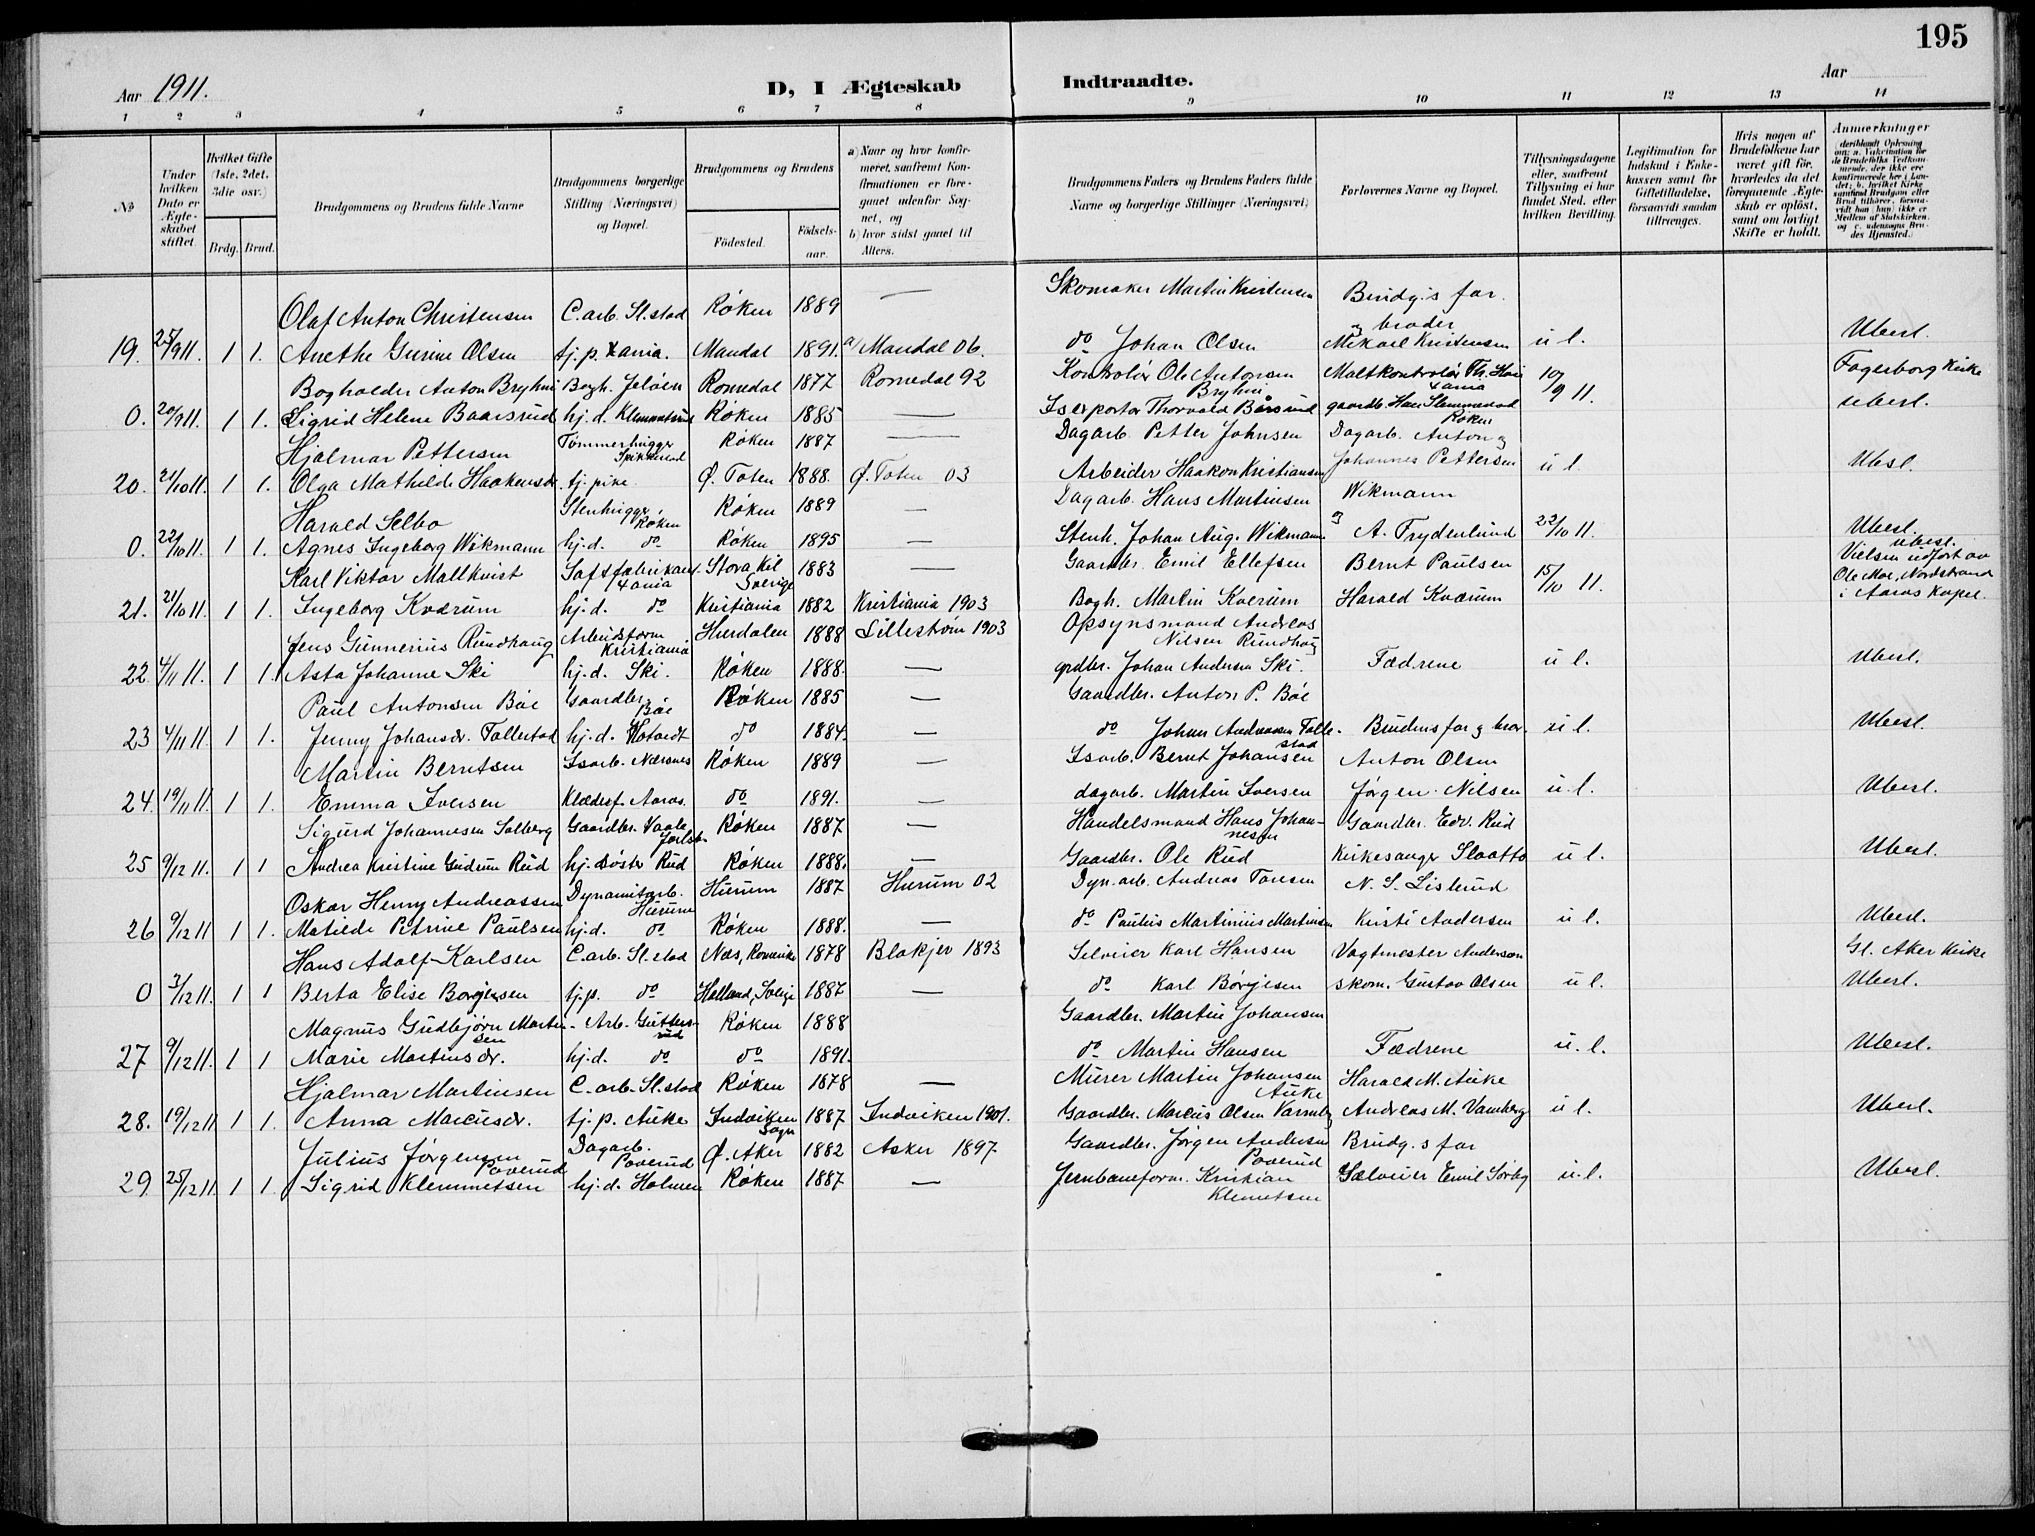 195
Aar 1911.
D, I Ægteskab Indtraadte.
Aar
1 2 3 4 5 6 7 8 9 10 11 12 13 14
№
Under hvilken Dato er Ægteskabet stiftet.
Hvilket Gifte (1ste, 2det, 3die osv.)
Brdg. Brud.
Brudgommens og Brudens fulde Navne
Brudgommens borgerlige Stilling (Næringsvei) og Bopæl.
Brudgommens og Brudens
Fødested. Fødselsaar.
a) Naar og hvor konfirmeret, saafremt Konfirmationen er foregaaet udenfor Sognet, og
b) hvor sidst gaaet til Alters.
Brudgommens Faders og Brudens Faders fulde Navne og borgerlige Stillinger (Næringsvei)
Forlovernes Navne og Bopæl.
Tillysningsdagene eller, saafremt Tillysning ei har fundet Sted, efter hvilken Bevilling.
Legitimation for Indskud i Enkekassen samt for Giftetilladelse, forsaavidt saadan tiltrænges.
Hvis nogen af Brudefolkene har været gift før, hvorledes da det foregaaende Ægteskab er opløst, samt om lovligt Skifte er holdt.
Anmerkninger (deriblandt Oplysning om: a. Vakcination for de Brudefolks Vedkommende, der ikke ere konfirmerede her i Landet; b. hvilket Kirke samfund Brudgom eller Brud tilhører, forsaavidt han (hun) ikke er Medlem af Statskirken, og c. udensogns Brudes Hjemsted.)
Olaf Anton Christensen C.arb. Sl.stad Røken 1889 — Skomaker Martin Kristensen Brudg.s far.
19. 25/9 11. 1 1. Anethe Gurine Olsen tj.p. Xania. Mandal 1891. a) Mandal 06. do Johan Olsen og broder Mikael Kristensen u l. Ubesl.
Bogholder Anton Bryhni Bogh. Jeløen Romedal 1877 Romedal 92 Kontrolør Ole Antonsen Bryhni Maltkontrolør Th. Xania 10/9 11. Fagerborg Kirke
0. 20/9 11. 1 1. Sigrid Helene Baarsrud hj.d. Klemmetsrud Røken 1885 — Isexportør Thorvald Bårsrud gaardb. Hans Røken ubesl.
Hjalmar Pettersen Tømmerhugger Spikkestad Røken 1887 — Dagarb. Petter Johnsen Dagarb. Anton og
20. 21/10 11. 1 1. Olga Mathilde Haakensdr. tj.pike Ø. Toten 1888. Ø. Toten 03 Arbeider Haakon Kristiansen Johannes Pettersen u l. Ubesl.
Harald Selbo Stenhugger Røken Røken 1889 — Dagarb. Hans Martinsen Wikmann
0. 22/10 11. 1 1. Agnes Ingeborg Wikmann hj.d. do Røken 1895 — Stenh. Johan Aug. Wikmann og A. Frydenlund 22/10 11. Ubesl.
Karl Viktor Mallkvist Saftfabrikant Xania Stora Kil Sverige 1883 — Gaardbr. Emil Ellefsen Bernt Paulsen 15/10 11. ubesl. Vielsen udført av Ole Moe, Nordstrand
21. 21/10 11. 1 1. Ingeborg Kværum hj.d. do Kristiania 1882 Kristiania 1903 Bogh. Martin Kværum Harald Kværum i Aaros Kapel.
Jens Gunnerius Rundhaug Arbeidsform Kristiania Hurdalen 1888 Lillestrøm 1903 Opsynsmand Andreas Nilsen Rundhaug
22 4/11 11. 1 1. Asta Johanne Ski hj.d. Ski. Røken 1888. — grdbr. Johan Andersen Ski. Fædrene u l. Ubesl.
Paul Antonsen Bøe Gaardbr. Bøe Røken 1885 — Gaardbr. Anton P. Bøe
23 4/11 11. 1 1. Jenny Johansdr. Follestad hj.d. do 1884. — do Johan Andreasen Follestad Brudens far og bror. u l. Ubesl.
Martin Berntsen Isarb. Nærsnes Røken 1889 — Isarb. Bernt Johansen Anton Olsen
24. 19/11 11. 1 1. Emma Iversen Klædesf. Aaros. do 1891. — dagarb. Martin Iversen Jørgen Nilsen u.l. Ubesl.
Sigurd Johannesen Solberg Gaardbr. Vaale Jarlsb. Røken 1887 — Handelsmand Hans Johannesen Gaardbr. Edv. Rud
25 9/12 11. 1 1 Andrea Kristine Gudrun Rud hj. søster Rud Røken 1888. — Gaardbr. Ole Rud Kirkesanger Slaatto u l. Ubesl.
Oskar Henry Andreassen Dynamitarb. Hurum Hurum 1887 Hurum 02 Dyn.arb. Andreas Toresen N. S. Lislerud
26 9/12 11 1 1. Matilde Petrine Paulsen hj.d. do. Røken 1888. — do Paulus Martinius Martinsen Kristi Andersen u l. Ubesl.
Hans Adolf Karlsen C.arb. Sl.stad Næs, Romerike 1878 Blakjer 1893 Selveier Karl Hansen Vagtmester Andersen Gl. Aker Kirke
0 3/12 11. 1 1 Berta Elise Borgersen tj.p. do Halland, Sverige 1887 — do Karl Børgjesen skom. Gustav Olsen u l. Ubesl.
Magnus Gudbjørn Martinsen Arb. Guttersrud Røken 1888 Gaardbr. Martin Johansen
27 9/12 11. 1 1 Marie Martinsdr. hj.d. do do 1891. do Martin Hansen Fædrene u. l. Ubesl.
Hjalmar Martinsen C.arb. Sl.stad Røken 1878 — Murer Martin Johansen Auke Harald M. Auke
28. 19/12 11 1 1. Anna Marcusdr. tj.p. Auke Indviken Sogn 1887 Indviken 1901. Gaardbr. Marcus Olsen Varmberg Andreas M. Vamberg u l. Ubesl.
Julius Jørgensen Poverud Dagarb. Poverud Ø. Aker 1882 Asker 1897 Gaardbr. Jørgen Andersen Poverud Brudg.s far
29 25/12 11 1 1. Sigrid Klemmetsen hj.d. Holmen Røken 1887 — Jernbaneform. Kristian Klemetsen Sælveier Emil Sørby u.l. Ubesl.